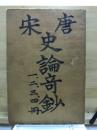 唐
宋
史論奇鈔
一二三四冊